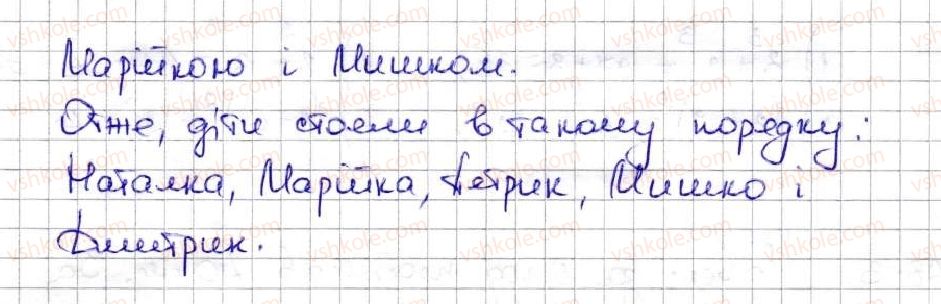 Марійкою і Мишком.
Отже, діти стояли в такому порядку:
Наталка, Марійка, Петрик, Мишко і
Дмитрик.